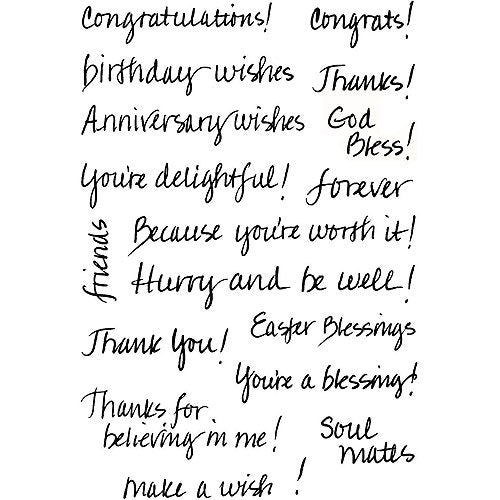 Congratulations! Congrats!
birthday wishes Thanks!
Anniversary wishes God
Bless!
You're delightful! forever
friends
Because you're worth it!
Hurry and be well!
Easter Blessings
Thank You!
You're a blessing!
Thanks for
believing in me!
Soul
mates
make a wish !